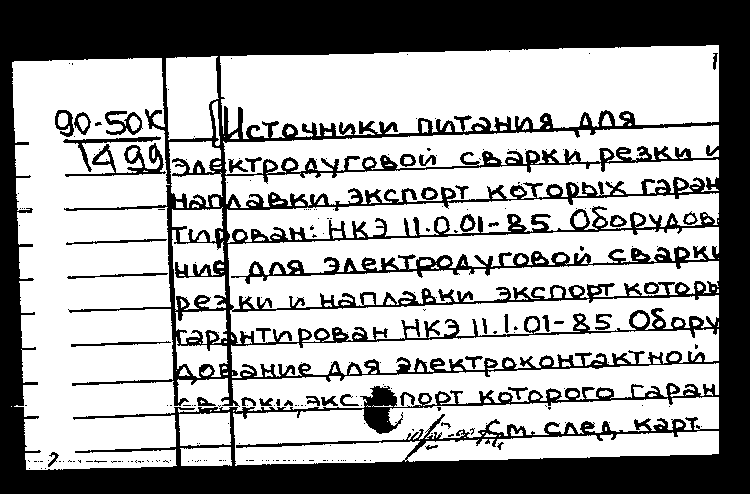 90-50К
1499
[Источники питания для
электродуговой сварки, резки и
наплавки, экспорт которых гаран
тирован: НКЭ 11.0.01-85. Оборудова
ние для электродуговой сварки
резки и наплавки экспорт которы
гарантирован НКЭ 11.1.01-85. Обору
дование для электроконтактной
сварки, экспорт которого гаран
См. след. карт.